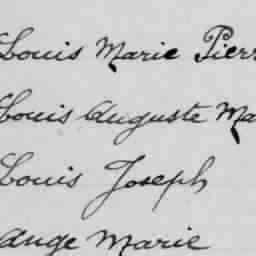 Louis Marie Pierr
Louis Auguste Ma
Louis Joseph
Ange Marie